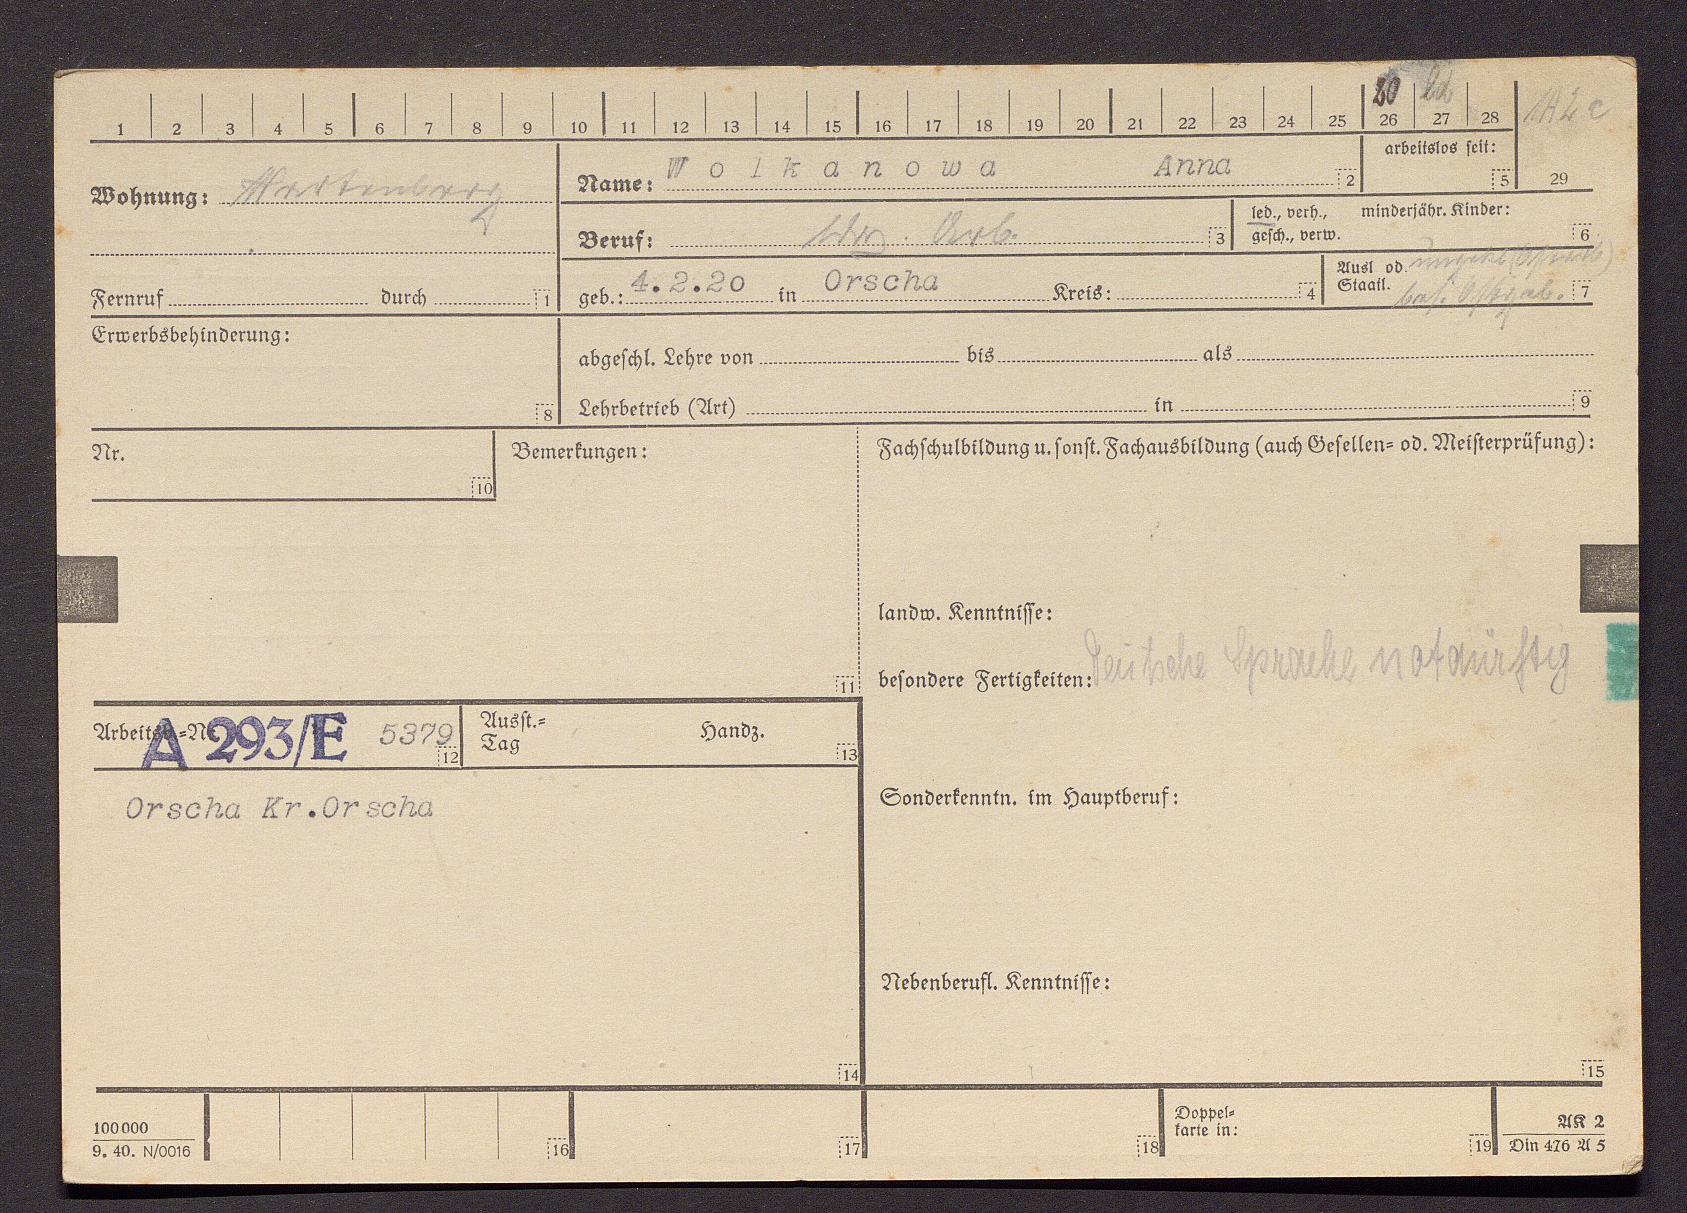 20
1 2 3 4 5 6 7 8 9 10 11 12 13 14 15 16 17 18 19 20 21 22 23 24 25 26 27 28
Wohnung:
Name: Wolkanowa Anna 2
arbeitslos seit:
5 29
Beruf: Arb. 3
led., verh., minderjähr. Kinder:
gesch., verw. 6
Fernruf durch 1
geb.: 4.2.20 in Orscha Kreis: 4
Ausl od.
Staatl. 7
Erwerbsbehinderung:
8
abgeschl. Lehre von bis als
Lehrbetrieb (Art) in 9
Nr.
10
Bemerkungen:
11
Fachschulbildung u. sonst. Fachausbildung (auch Gesellen- od. Meisterprüfung):
landw. Kenntnisse:
besondere Fertigkeiten: Deutsche Sprache notdürftig
Arbeitsb.-Nr. A 293/E 5379 12
Ausst.-
Tag
Handz.
13
Orscha Kr.Orscha
14
Sonderkenntn. im Hauptberuf:
Nebenberufl. Kenntnisse:
15
100 000
9. 40. N/0016
16 17 18
Doppel-
karte in:
19
AK 2
Din 476 A 5